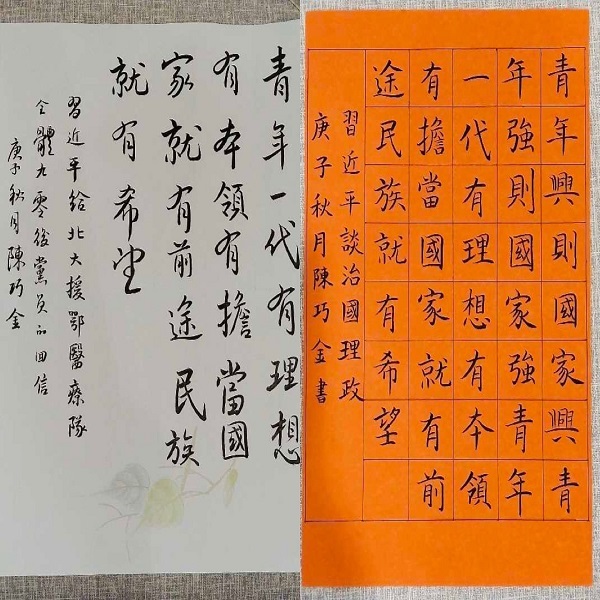 青年一代有理想
有本領有擔當國
家就有前途民族
就有希望
習近平給北大援鄂醫療隊
全體九零後黨員的回信
庚子秋月陳巧金
青年興則國家興青
年強則國家強青年
一代有理想有本領
有擔當國家就有前
途民族就有希望
習近平談治國理政
庚子秋月陳巧金書